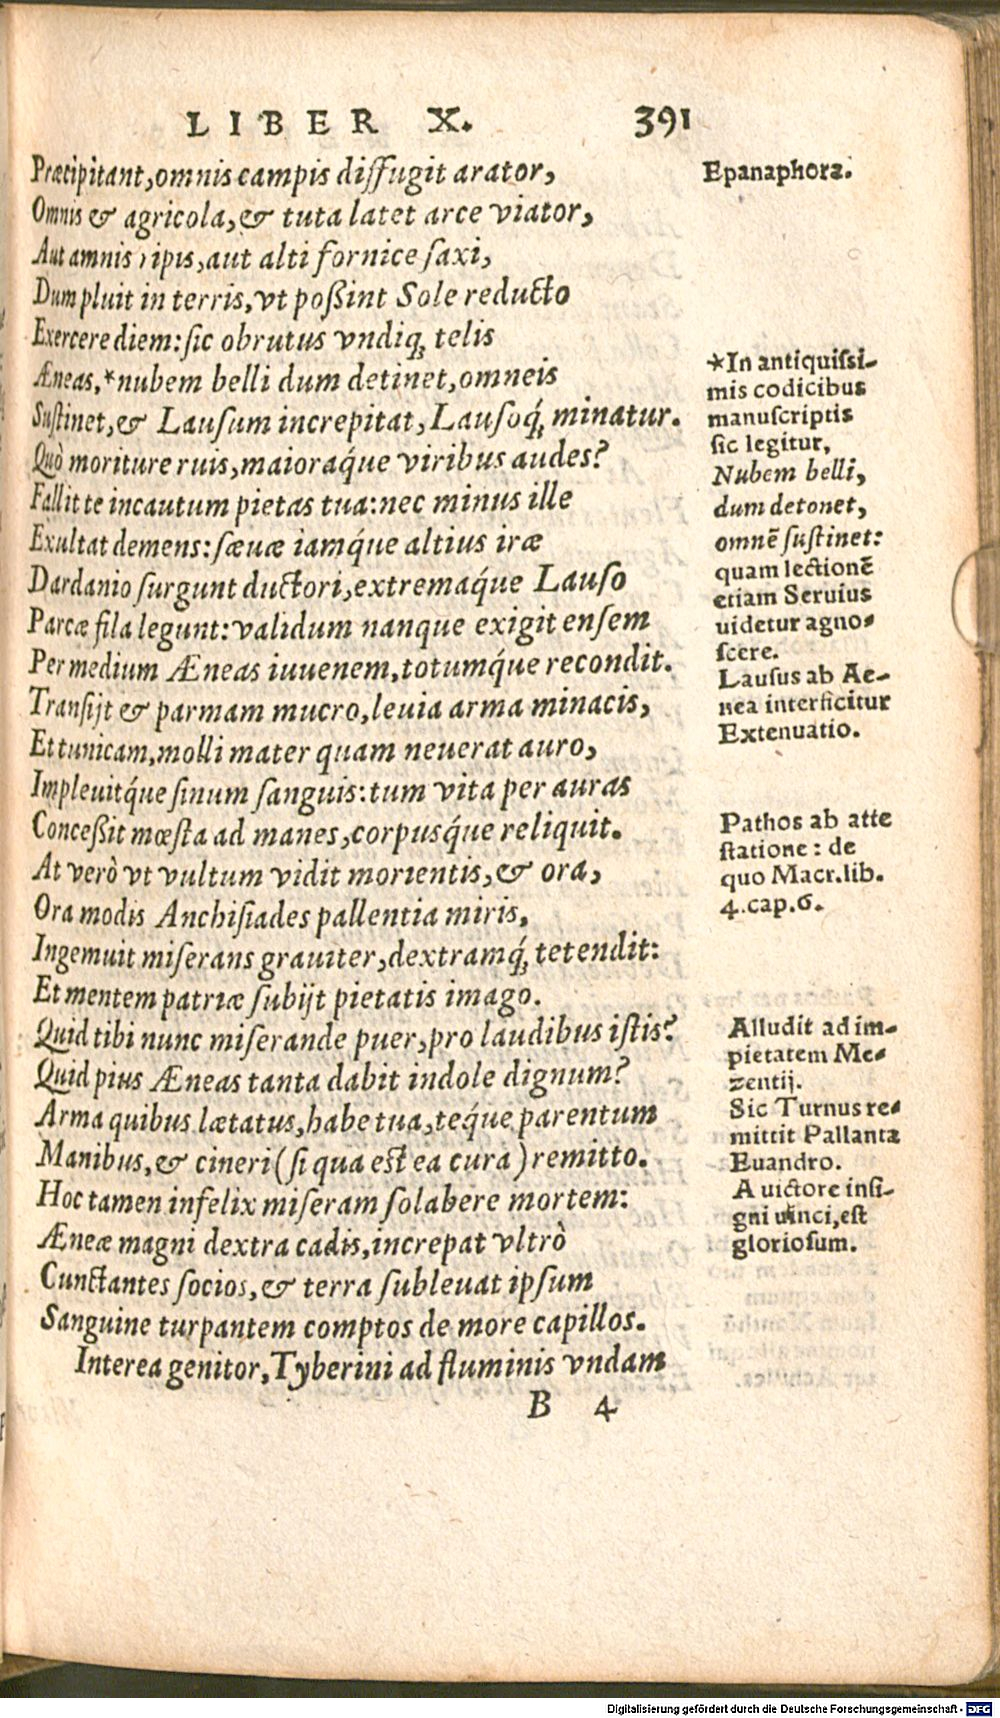 LIBER X. 391
Præcipitant, omnis campis diffugit arator,
Omnis & agricola, & tuta latet arce viator,
Aut amnis ripis, aut alti fornice saxi,
Dum pluit in terris, vt poßint Sole reducto
Exercere diem: sic obrutus vndiq; telis
Æneas, *nubem belli dum detinet, omneis
Sustinet, & Lausum increpitat, Lausoq́; minatur.
Quò moriture ruis, maioraq́ue viribus audes?
Fallit te incautum pietas tua: nec minus ille
Exultat demens: sæuæ iamq́ue altius iræ
Dardanio surgunt ductori, extremaq́ue Lauso
Parcæ fila legunt: validum nanque exigit ensem
Per medium Æneas iuuenem, totumq́ue recondit.
Transijt & parmam mucro, leuia arma minacis,
Et tunicam, molli mater quam neuerat auro,
Impleuitq́ue sinum sanguis: tum vita per auras
Conceßit mœsta ad manes, corpusq́ue reliquit.
At verò vt vultum vidit morientis, & ora,
Ora modis Anchisiades pallentia miris,
Ingemuit miserans grauiter, dextramq́; tetendit:
Et mentem patriæ subijt pietatis imago.
Quid tibi nunc miserande puer, pro laudibus istis?
Quid pius Æneas tanta dabit indole dignum?
Arma quibus lætatus, habe tua, teq́ue parentum
Manibus, & cineri (si qua est ea cura) remitto.
Hoc tamen infelix miseram solabere mortem:
Æneæ magni dextra cadis, increpat vltrò
Cunctantes socios, & terra subleuat ipsum
Sanguine turpantem comptos de more capillos.
Interea genitor, Tyberini ad fluminis vndam
B 4
Epanaphora.
*In antiquissi-
mis codicibus
manuscriptis
sic legitur,
Nubem belli,
dum detonet,
omnẽ sustinet:
quam lectionẽ
etiam Seruius
uidetur agno-
scere.
Lausus ab Ae-
nea interficitur
Extenuatio.
Pathos ab atte
statione: de
quo Macr. lib.
4. cap. 6.
Alludit ad im-
pietatem Me-
zentij.
Sic Turnus re-
mittit Pallanta
Euandro.
A uictore insi-
gni uinci, est
gloriosum.
Digitalisierung gefördert durch die Deutsche Forschungsgemeinschaft - DFG